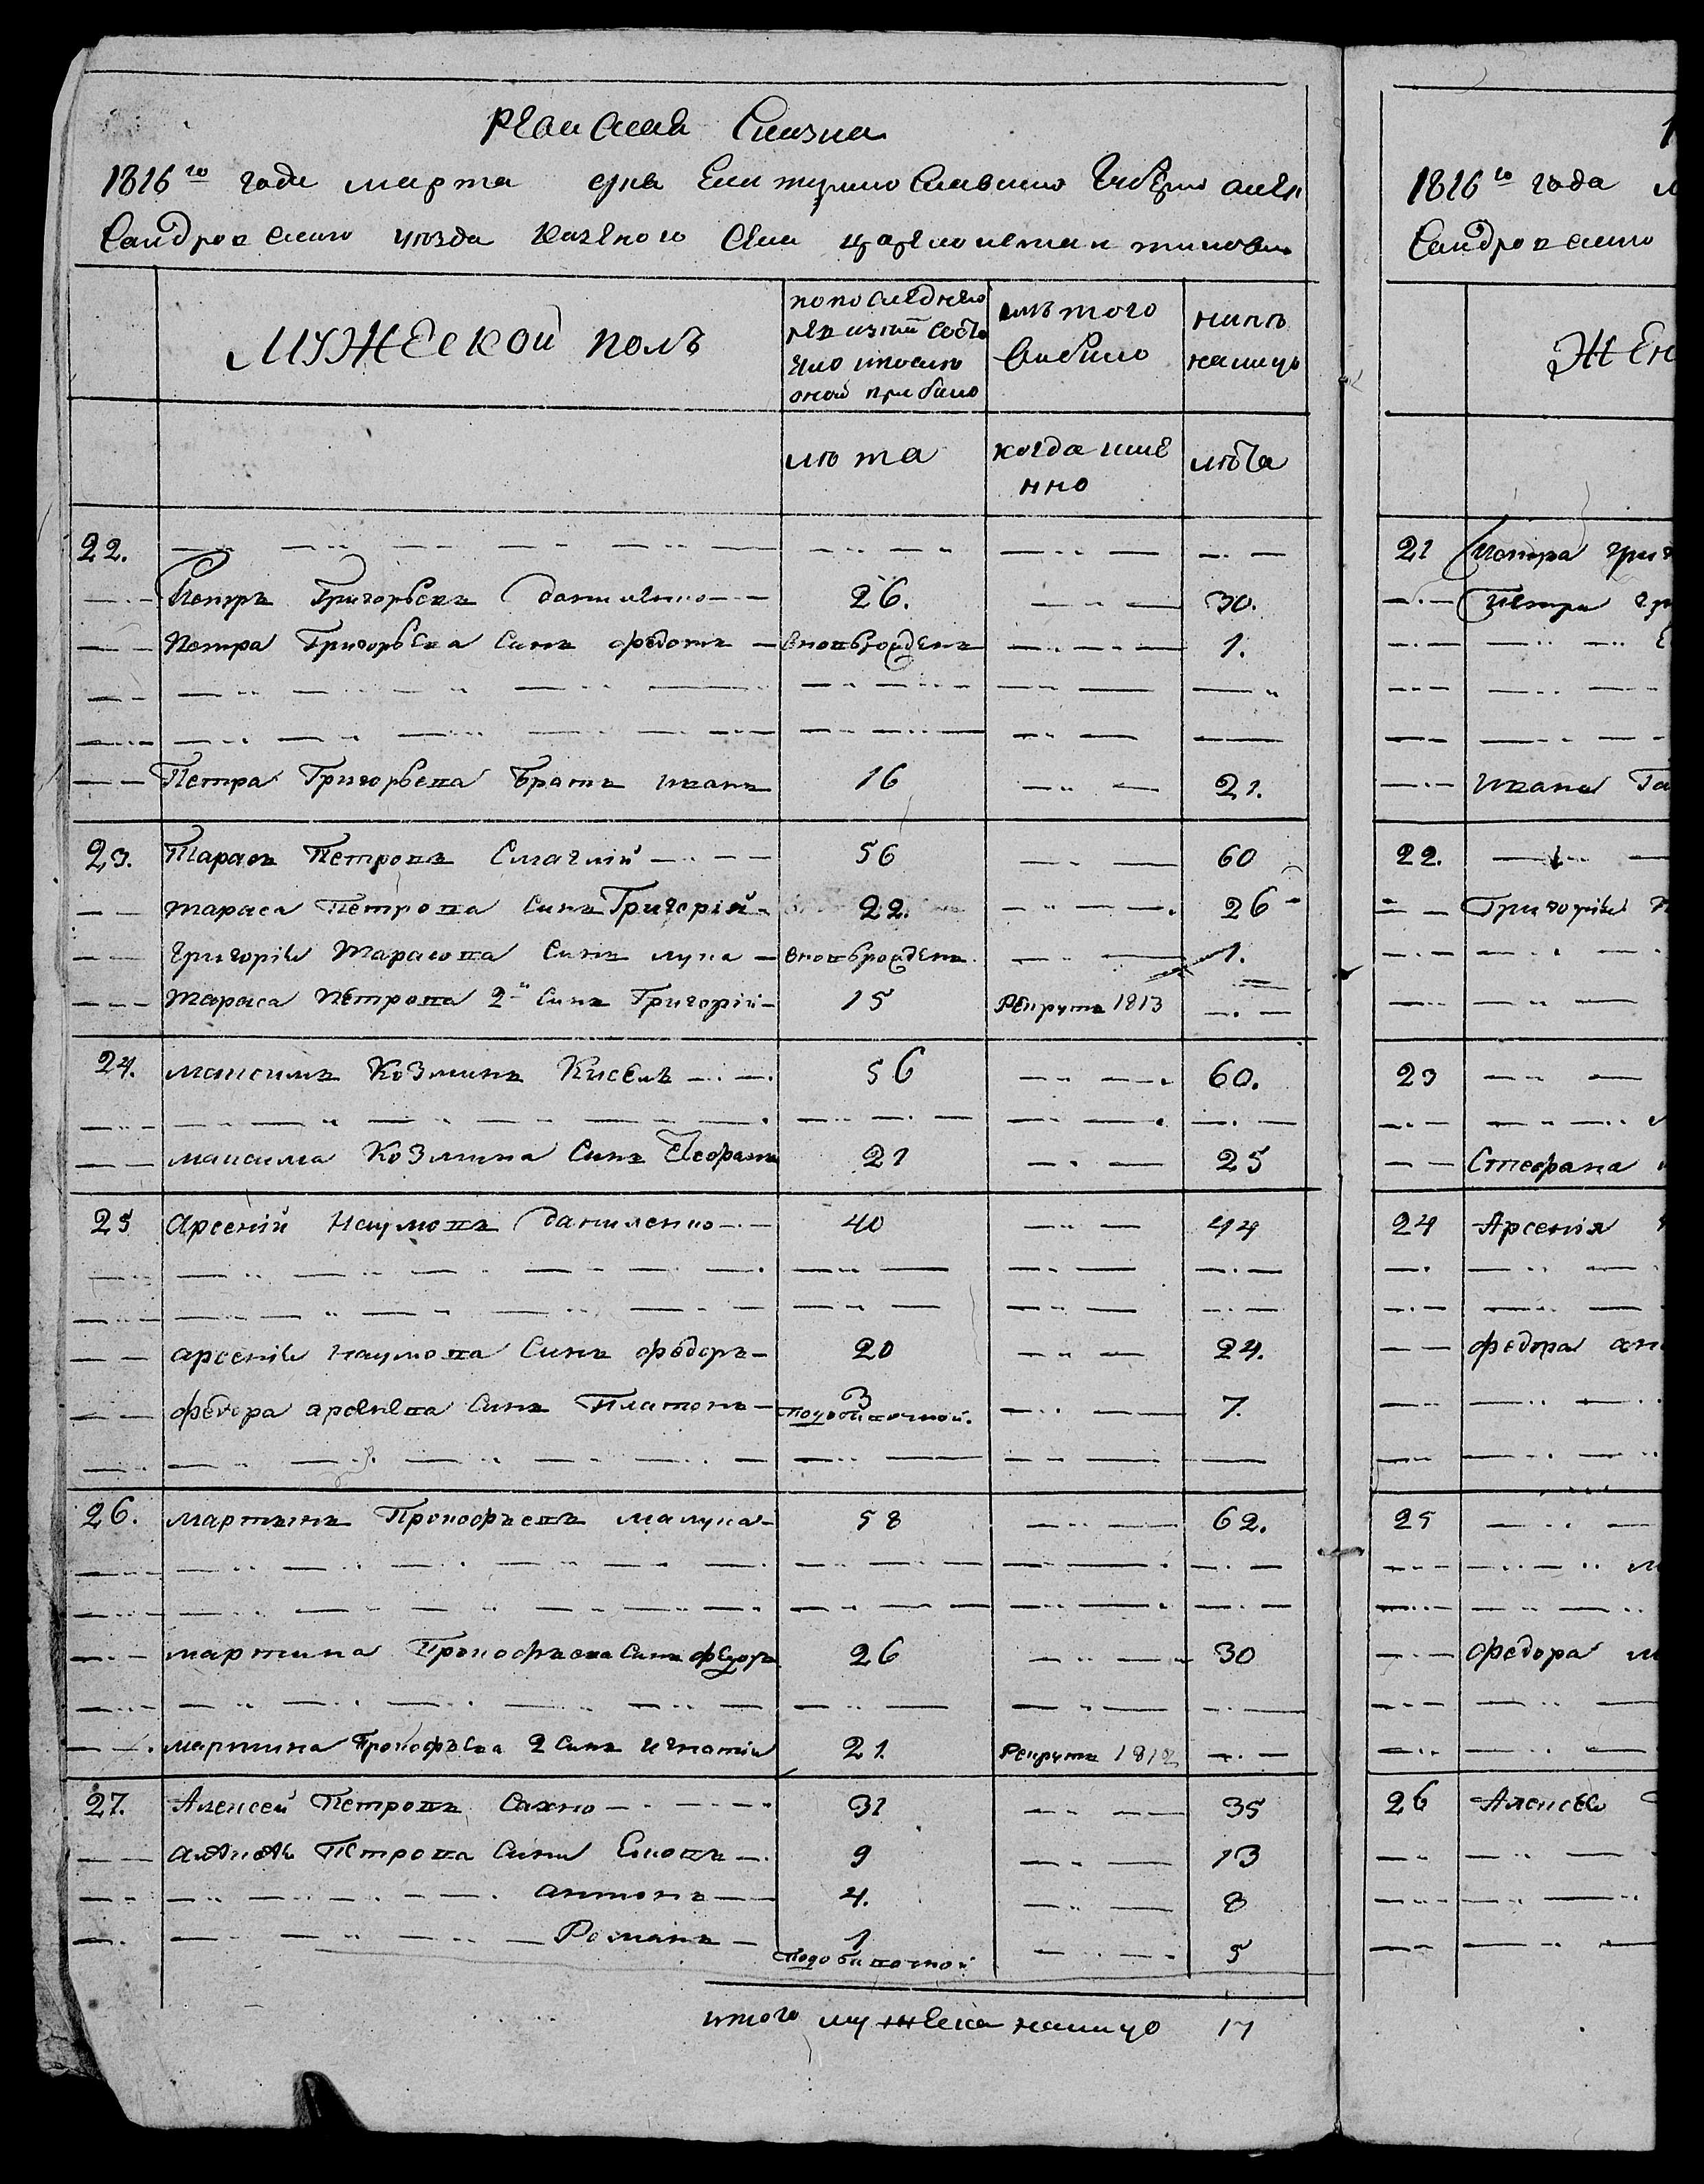 Ревиская Сказка
1816го года марта дня Екатеринославской Губерно Алек
сандровского уезда казеного села Царе констан тиновки
МУЖЕСКОЙ ПОЛЪ
по последней
ревизии состо
яло и после
оной прибыло
изъ того
выбыло
нынѣ
налицо
лѣта
когда име
нно
лѣта
22.
Петръ Григорьевъ даниленко 26. 30.
Петра Григорьева Сынъ Федотъ вновьрожденъ 1.
Петра Григорьева братъ иванъ 16 21.
23. Тарасъ Петровъ Смачний 56 60
Тараса Петрова Сынъ Григорій 22. 26
Григорія Тарасова Сынъ лука вновьрожденъ 1.
Тараса Петрова 2й Сынъ Григорій 15 Рекрутъ 1813
24. максимъ Козминъ Киселъ 56 60.
максима Козмина Сынъ Стефанъ 21 25
25 Арсеній Наумовъ даниленко 40 44
арсенія Наумова Сынъ Федоръ 20 24.
Федора арсенева Сынъ Платонъ 3 7.
26. мартынъ Прокофъевъ малука 58 62.
мартина Прокофъева Сынъ Федоръ 26 30
мартина Прокофъева 2 Сынъ Игнатій 21. Рекрутъ 1812
27. Алексей Петровъ Сахно 31 35
Алексѣя Петрова Сыны 9 13
антонъ 4. 8
Романъ 1 5
итого мужеска налицо 17
1816го года
сандровского
ЖЕН
21 Петра Григ
Петра гр
ивана
22.
Григорія
23
Стефана
24 Арсения
Федора
25
Федора м
26 Алексѣя